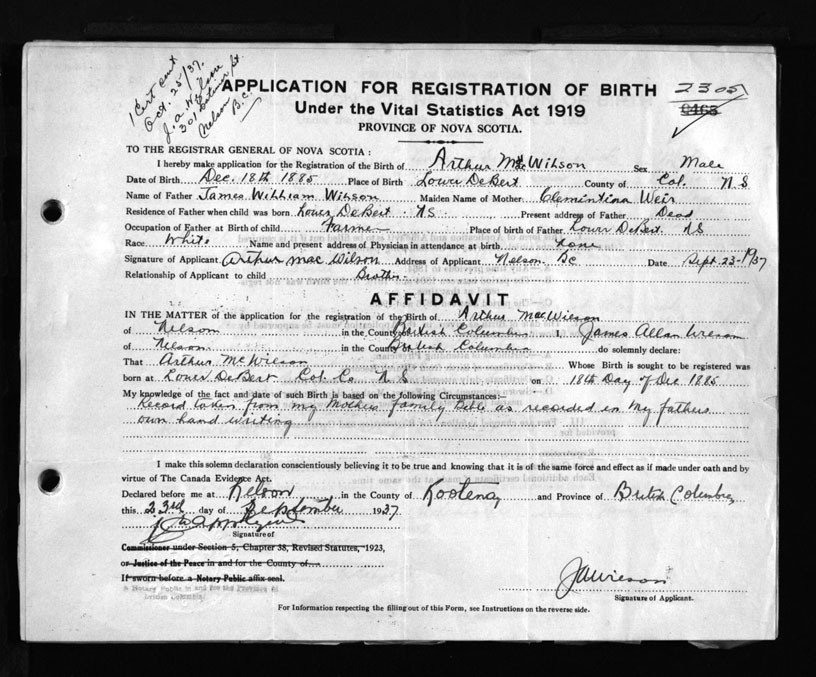 1 Cert sent
Oct. 25/37.
J. A. Wilson
301 St.
Nelson
B.C.
APPLICATION FOR REGISTRATION OF BIRTH
2305
Under the Vital Statistics Act 1919
9463
PROVINCE OF NOVA SCOTIA.
TO THE REGISTRAR GENERAL OF NOVA SCOTIA :
I hereby make application for the Registration of the Birth of Arthur Mc Wilson Sex Male
Date of Birth Dec. 18th 1885 Place of Birth Lower DeBert County of Col. N S
Name of Father James William Wilson Maiden Name of Mother Clementina Weir
Residence of Father when child was born Lower DeBert. NS Present address of Father Dead
Occupation of Father at Birth of Child Farmer Place of birth of Father Lower DeBert. NS
Race White Name and present address of Physician in attendance at birth None
Signature of Applicant Arthur Mac Wilson Address of Applicant Nelson. Bc Date Sept. 23-1937
Relationship of Applicant to child Brother
AFFIDAVIT
IN THE MATTER of the application for the registration of the Birth of Arthur MacWilson
of Nelson in the County of British Columbia I, James Allan Wilson
of Nelson in the County of British Columbia do solemnly declare:
That Arthur McWilson Whose Birth is sought to be registered was
born at Lower DeBert Col. Co. N S on 18th Day of Dec 1885
My knowledge of the fact and date of such Birth is based on the following Circumstances:—
Record taken from my Mothers family Bible as recorded in my fathers
own hand writing
I make this solemn declaration conscientiously believing it to be true and knowing that it is of the same force and effect as if made under oath and by
virtue of The Canada Evidence Act.
Declared before me at Nelson in the County of Kootenay and Province of British Columbia
this 23rd day of September 1937
Signature of
Commissioner under Section 5, Chapter 38, Revised Statutes, 1923,
or Justice of the Peace in and for the County of
If sworn before a Notary Public affix seal.
A Notary Public in and for the Province of
British Columbia
JAWilson
Signature of Applicant.
For Information respecting the filling out of this Form, see Instructions on the reverse side.